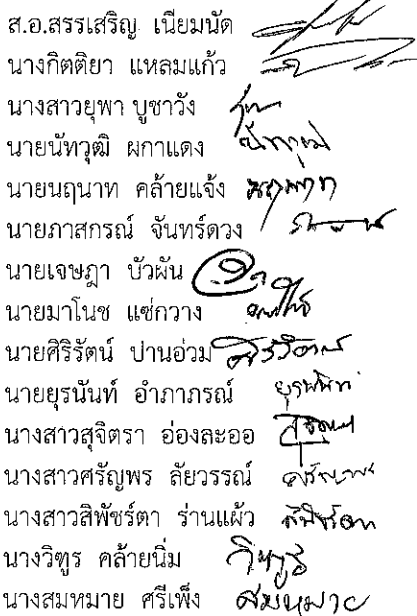 ส.อ.สรรเสริญ เนียมนัด
นางกิตติยา แหลมแก้ว
นางสาวยุพา บูชาวัง
นายนัทวุฒิ ผกาแดง นัทวุฒิ
นายนฤนาท คล้ายแจ้ง นฤนาท
นายภาสกรณ์ จันทร์ดวง
นายเจษฎา บัวผัน
นายมาโนช แซ่กวาง
นายศิริรัตน์ ปานอ่วม
นายยุรนันท์ อำภาภรณ์ ยุรนันท์
นางสาวสุจิตรา อ่องละออ
นางสาวศรัญพร ลัยวรรณ์
นางสาวสิพัชร์ตา ร่านแผ้ว
นางวิฑูร คล้ายนิ่ม วิฑูร
นางสมหมาย ศรีเพ็ง สมหมาย